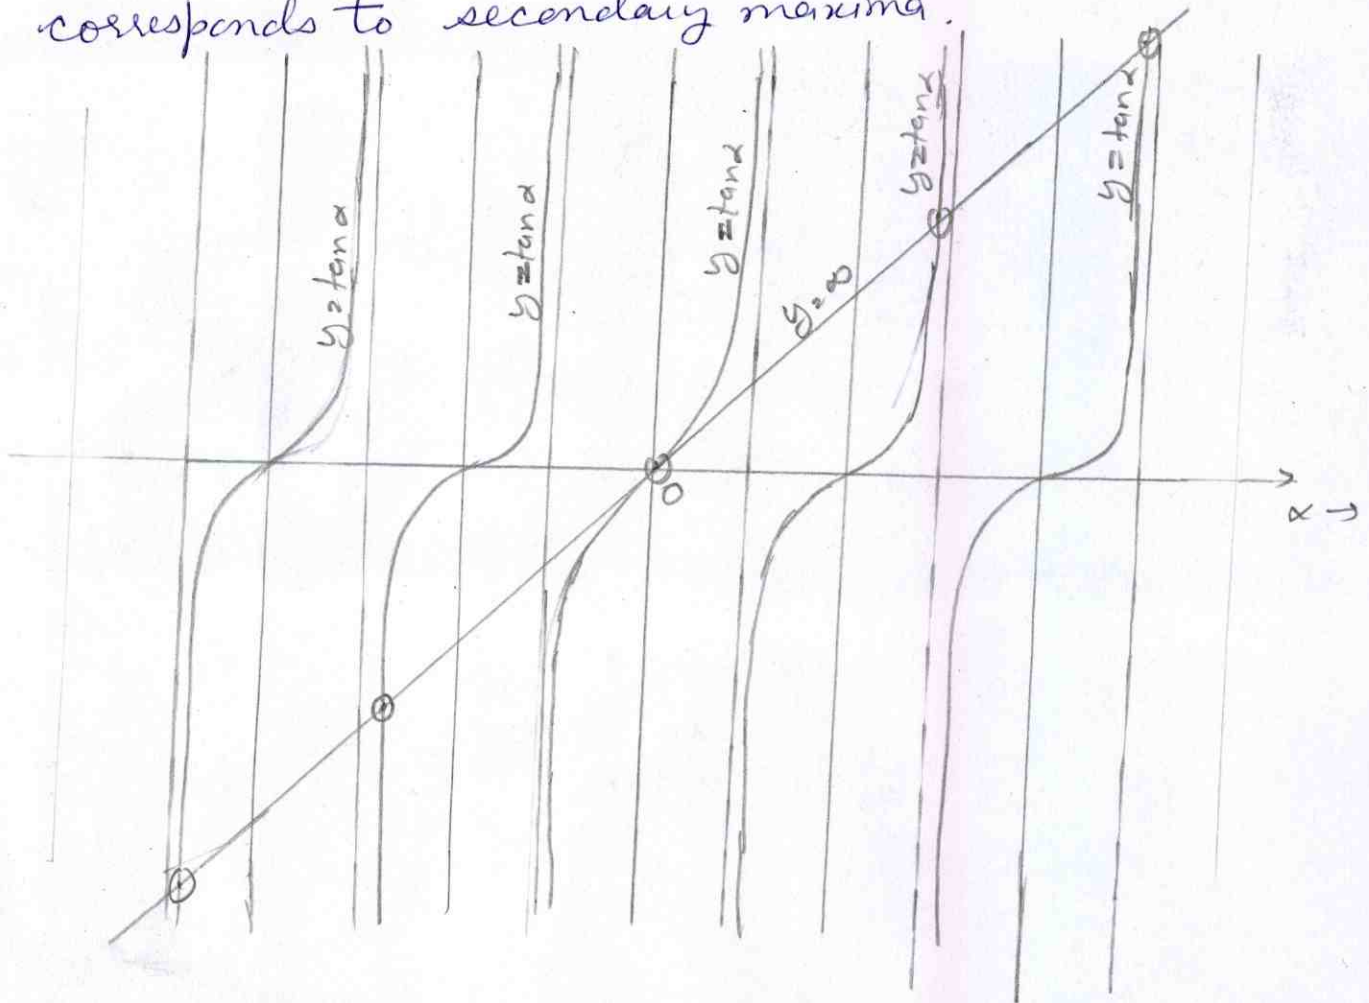 corresponds to secondary maxima.
y=tanα
y=tanα
y=tanα
y=α
y=tanα
y=tanα
O
α
→